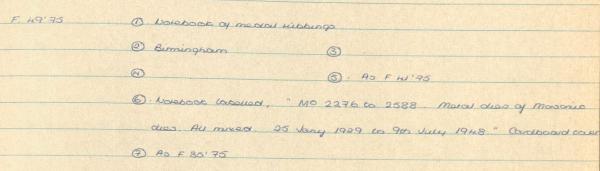 F. 49'75 ① Notebook of medal rubbings
② Birmingham ③
④ ⑤. As F 41'75
⑥. Notebook labelled, "MO 2276 to 2588. Metal dies of Masonic
dies. All mixed. 25 Jany 1929 to 9th July 1948" Cardboard cover
⑦ As F 35'75